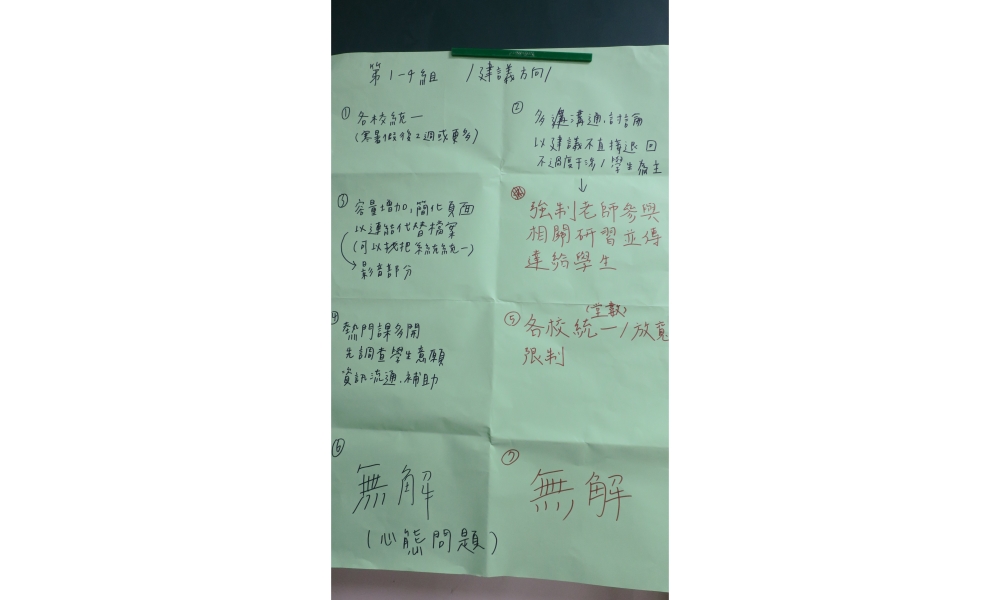 第1-4組 /建議方向/
① 各校統一
(寒暑假後2週或更多)
② 多邊溝通、討論
以建議不直接退回
不過度干涉/學生為主
↓
③ 容量增加,簡化頁面
以連結代替檔案
(可以找把系統統一)
→影音部分
強制老師參與
相關研習並傳
達給學生
④ 熱門課多開
先調查學生意願
資訊流通、補助
(堂數)
⑤ 各校統一/放寬
限制
⑥ 無解
(心態問題)
⑦ 無解